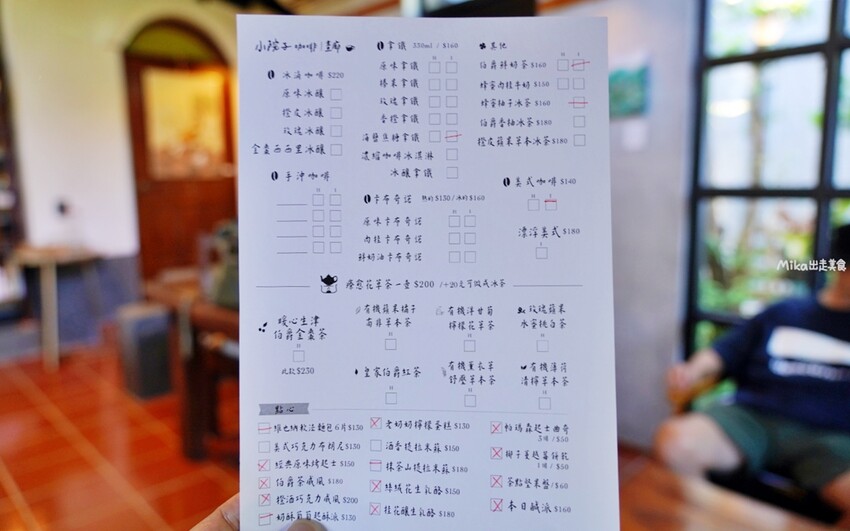 小院子 咖啡|畫廊
冰滴咖啡 $220
原味冰釀
橙皮冰釀
玫瑰冰釀
金棗西西里冰釀
手沖咖啡
H I
拿鐵 330ml / $160
H I
原味拿鐵
榛果拿鐵
玫瑰拿鐵
香橙拿鐵
海鹽焦糖拿鐵
濃縮咖啡冰淇淋
冰釀拿鐵
卡布奇諾 熱的$130/冰的$160
H I
原味卡布奇諾
肉桂卡布奇諾
鮮奶油卡布奇諾
其他
H I
伯爵鮮奶茶 $160
蜂蜜肉桂牛奶 $150
蜂蜜柚子冰茶 $160
伯爵香柚冰茶 $180
橙皮蘋果草本冰茶 $180
美式咖啡 $140
H I
漂浮美式 $180
I
療癒花草茶一壺 $200 /+20元可做成冰茶
暖心生津
伯爵金棗茶
H
此款$230
有機蘋果橘子
南非草本茶
H
皇家伯爵紅茶
H
有機洋甘菊
檸檬花草茶
H
有機薰衣草
舒壓草本茶
H
玫瑰蘋果
水蜜桃白茶
H
有機薄荷
清檸草本茶
H
點心
維也納軟法麵包6片$130
美式巧克力布朗尼$130
經典原味烤起士 $150
伯爵茶戚風 $180
橙酒巧克力戚風 $200
奶酥葡萄起酥派 $130
老奶奶檸檬蛋糕 $130
酒香提拉米蘇 $150
抹茶山提拉米蘇 $180
絲絨花生乳酪 $150
桂花釀生乳酪 $180
帕瑪森起士曲奇
3項 / $50
椰子蔓越莓餅乾
1項 / $50
茶點堅果盤 / $60
本日鹹派 $160
Mika出走美食